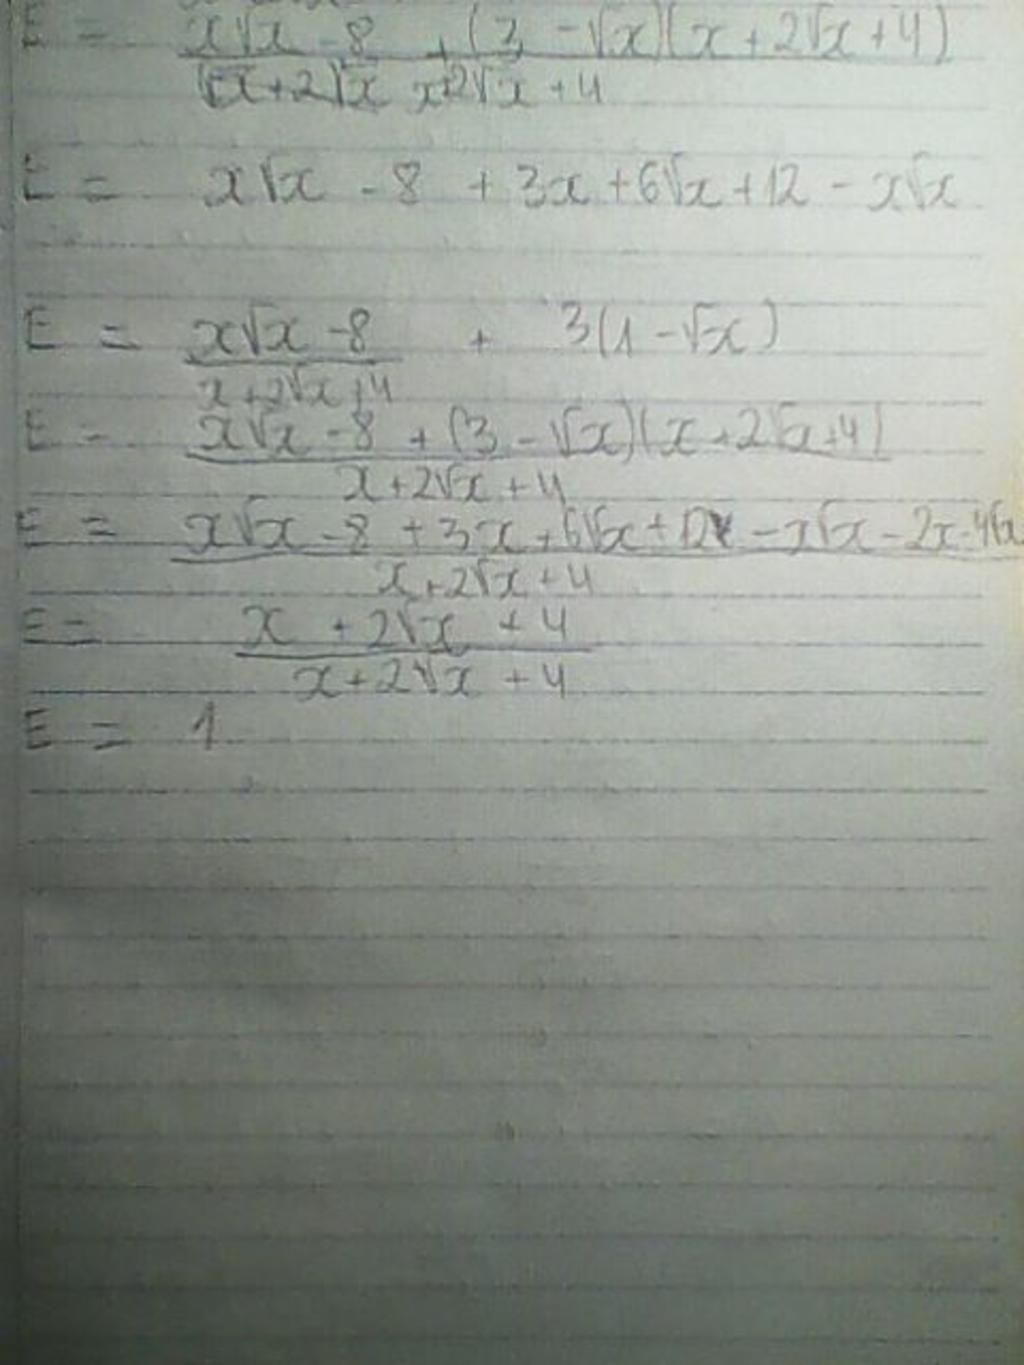 E = x√x - 8 + (3 - √x)(x + 2√x + 4)
x+2√x + 4
E = x√x - 8 + 3x + 6√x + 12 - x√x
E = x√x - 8 + 3(1 - √x)
x + 2√x + 4
E = x√x - 8 + (3 - √x)(x + 2√x + 4)
x + 2√x + 4
E = x√x - 8 + 3x + 6√x + 12 - x√x - 2x - 4√x
x + 2√x + 4
E = x + 2√x + 4
x + 2√x + 4
E = 1